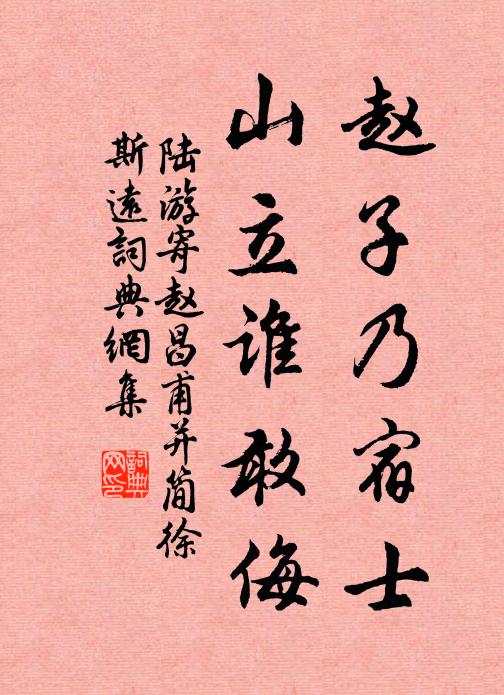 赵子乃宿士
山立谁敢侮
陆游寄赵昌甫并简徐
斯遠詞典網集
詞典
网印